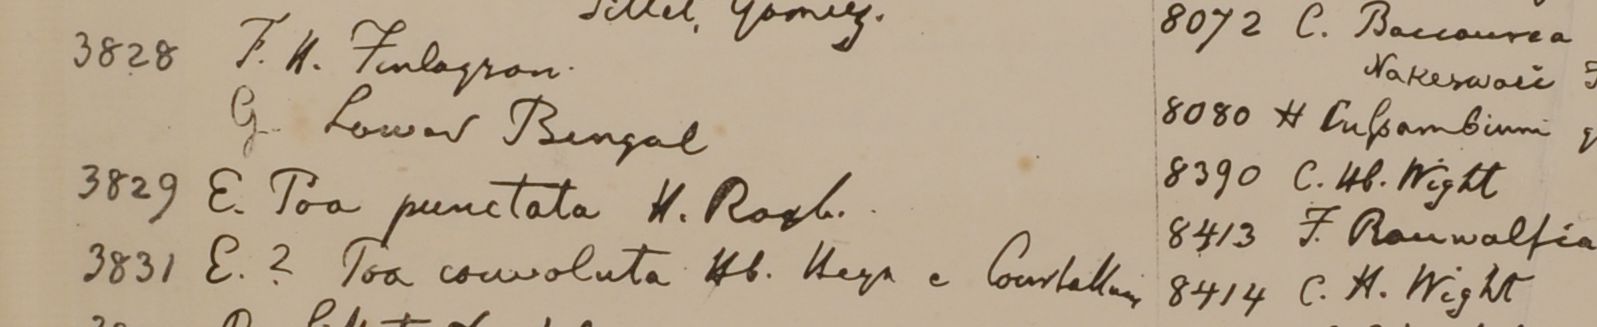 Sillet, Gomez.
3828 F. H. Finlayson.
G Lower Bengal
3829 E. Poa punctata H. Roxb.
3831 E. ? Poa convoluta Hb. Heyn e
8072 C. Baccaurea
Nakeswari
8080 H Cussambium
8390 C. Hb. Wight
8413 F. Rauwalfia
8414 C. H. Wight